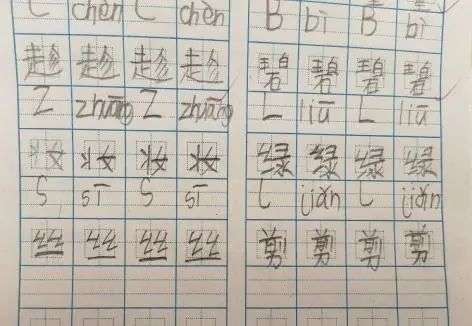 C chèn C chèn
趁 趁 趁 趁
Z zhuāng Z zhuāng
妆 妆 妆 妆
S sī S sī
丝 丝 丝 丝
B bì B bì
碧 碧 碧 碧
L liū L liū
绿 绿 绿 绿
jiǎn jiǎn
剪 剪 剪 剪